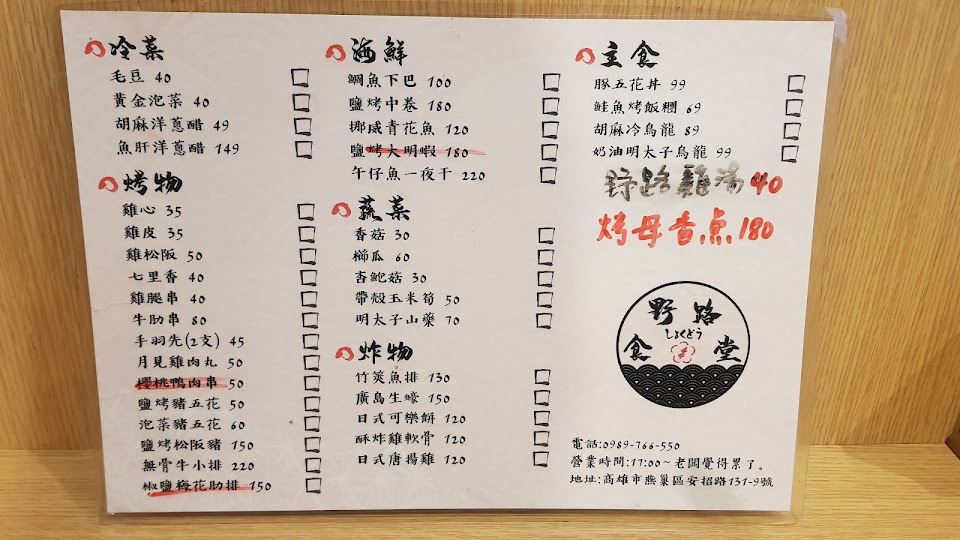 冷菜
毛豆 40
黃金泡菜 40
胡麻洋蔥醋 49
魚肝洋蔥醋 149
烤物
雞心 35
雞皮 35
雞松阪 50
七里香 40
雞腿串 40
牛肋串 80
手羽先(2支) 45
月見雞肉丸 50
櫻桃鴨肉串 50
鹽烤豬五花 50
泡菜豬五花 60
鹽烤松阪豬 150
無骨牛小排 220
椒鹽梅花肋排 150
海鮮
鯛魚下巴 100
鹽烤中卷 180
挪威青花魚 120
鹽烤大明蝦 180
午仔魚一夜干 220
蔬菜
香菇 30
櫛瓜 60
杏鮑菇 30
帶殼玉米筍 50
明太子山藥 70
炸物
竹筴魚排 130
廣島生蠔 150
日式可樂餅 120
酥炸雞軟骨 120
日式唐揚雞 120
主食
豚五花丼 99
鮭魚烤飯糰 69
胡麻冷烏龍 89
奶油明太子烏龍 99
野路雞湯 40
烤母香魚 180
野路
しょくどう
食堂
電話:0989-766-550
營業時間:17:00~老闆覺得累了。
地址:高雄市燕巢區安招路131-9號